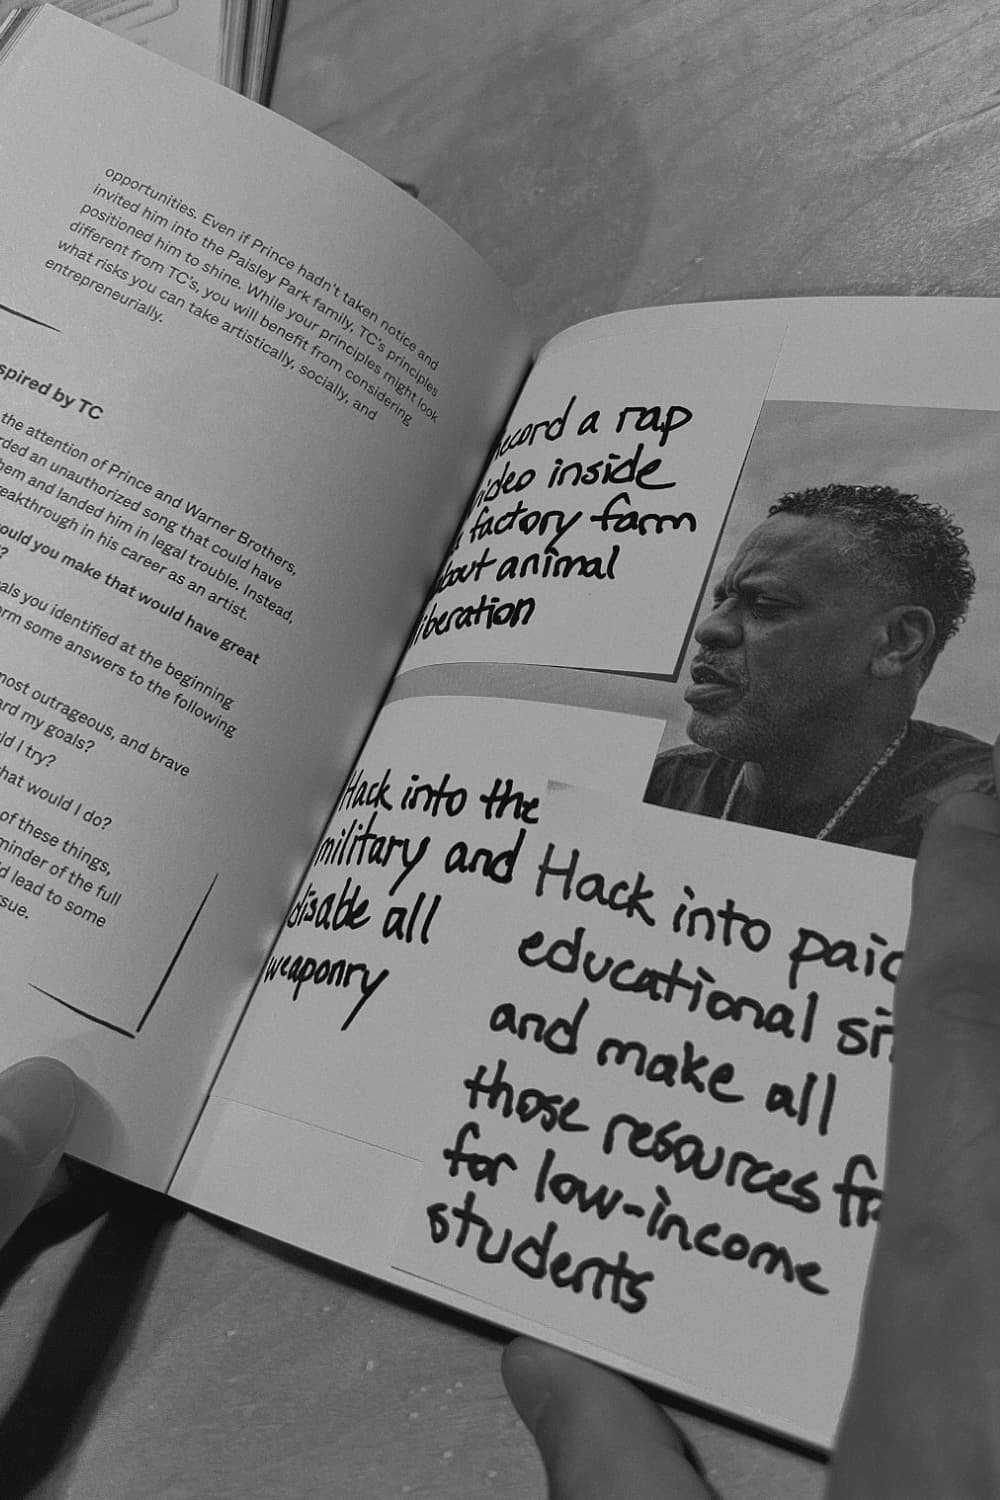 opportunities. Even if Prince hadn't taken notice and
invited him into the Paisley Park family, TC's principles
positioned him to shine. While your principles might look
different from TC's, you will benefit from considering
what risks you can take artistically, socially, and
entrepreneurially.
spired by TC
the attention of Prince and Warner Brothers,
rded an unauthorized song that could have
hem and landed him in legal trouble. Instead,
eakthrough in his career as an artist.
ould you make that would have great
?
als you identified at the beginning
orm some answers to the following
most outrageous, and brave
ard my goals?
ld I try?
hat would I do?
of these things,
minder of the full
d lead to some
sue.
ecord a rap
video inside
a factory farm
about animal
liberation
Hack into the
military and
disable all
weaponry
Hack into paid
educational si
and make all
those resources fr
for low-income
students